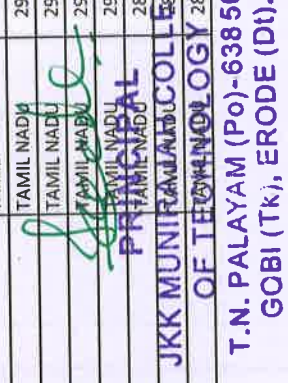 TAMIL NADU 29
TAMIL NADU 29
TAMIL NADU 29
TAMIL NADU 29
TAMIL NADU 28
PRINCIPAL
JKK MUNIRAJAH COLLE
TAMIL NADU 28
OF TECHNOLOGY
T.N. PALAYAM (Po)-63850
GOBI (Tk), ERODE (Dt).